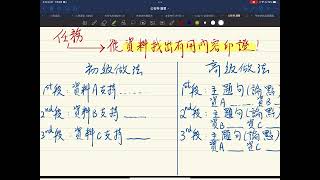 任務
從資料找出有用內容印證
初級做法
1st段：資料A支持
2nd段：資料B支持
3rd段：資料C支持
高級做法
1st段：主題句(論點)
資A 資B
2nd段：主題句(論點)
資B 資C
3rd段：主題句(論點)
資A 資C